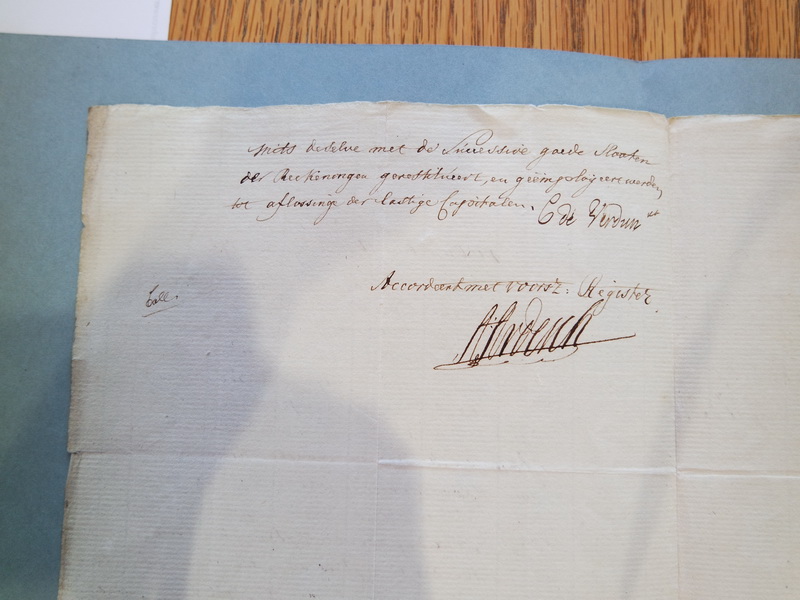 mits deselve met de Successive goede Slooten
der Reekeningen gerestitueert, en geëmploijeert werden
tot aflossinge der lastige Capitalen. C de Verdun
Accordeert met voorsz: Register
Coll.